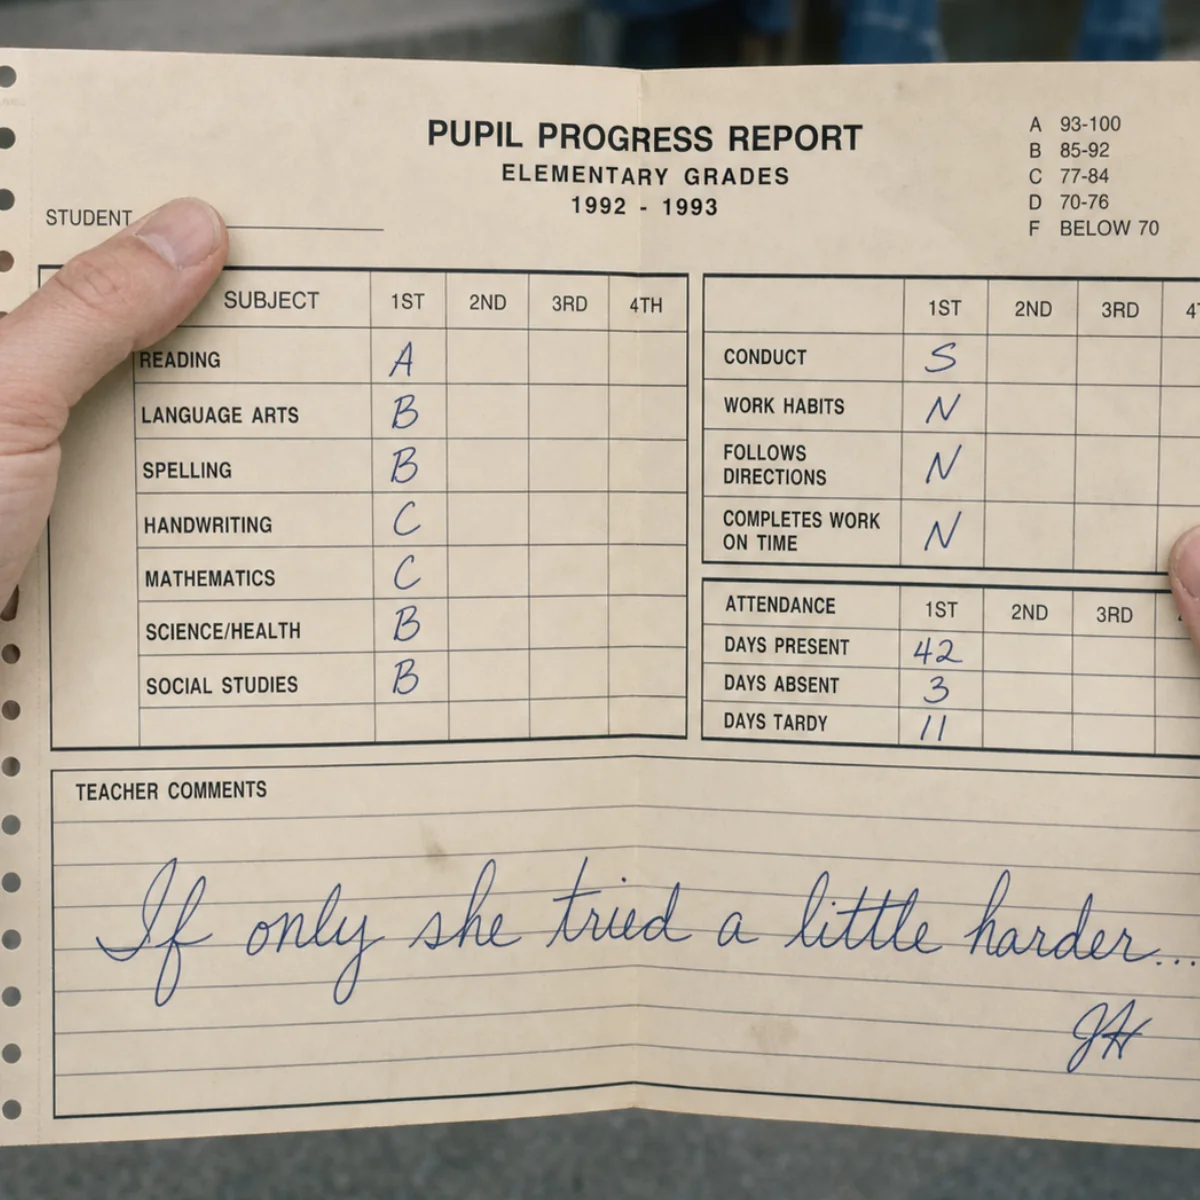 PUPIL PROGRESS REPORT
ELEMENTARY GRADES
1992 - 1993
A 93-100
B 85-92
C 77-84
D 70-76
F BELOW 70
STUDENT
SUBJECT 1ST 2ND 3RD 4TH
READING A
LANGUAGE ARTS B
SPELLING B
HANDWRITING C
MATHEMATICS C
SCIENCE/HEALTH B
SOCIAL STUDIES B
1ST 2ND 3RD
CONDUCT S
WORK HABITS N
FOLLOWS
DIRECTIONS N
COMPLETES WORK
ON TIME N
ATTENDANCE 1ST 2ND 3RD
DAYS PRESENT 42
DAYS ABSENT 3
DAYS TARDY 11
TEACHER COMMENTS
If only she tried a little harder...
JH